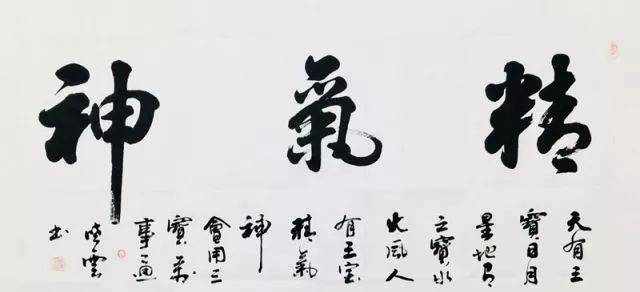 精氣神
天有三
寶日月
星地有
三寶水
火風人
有三宝
精氣
神
會用三
寶萬
事通
书